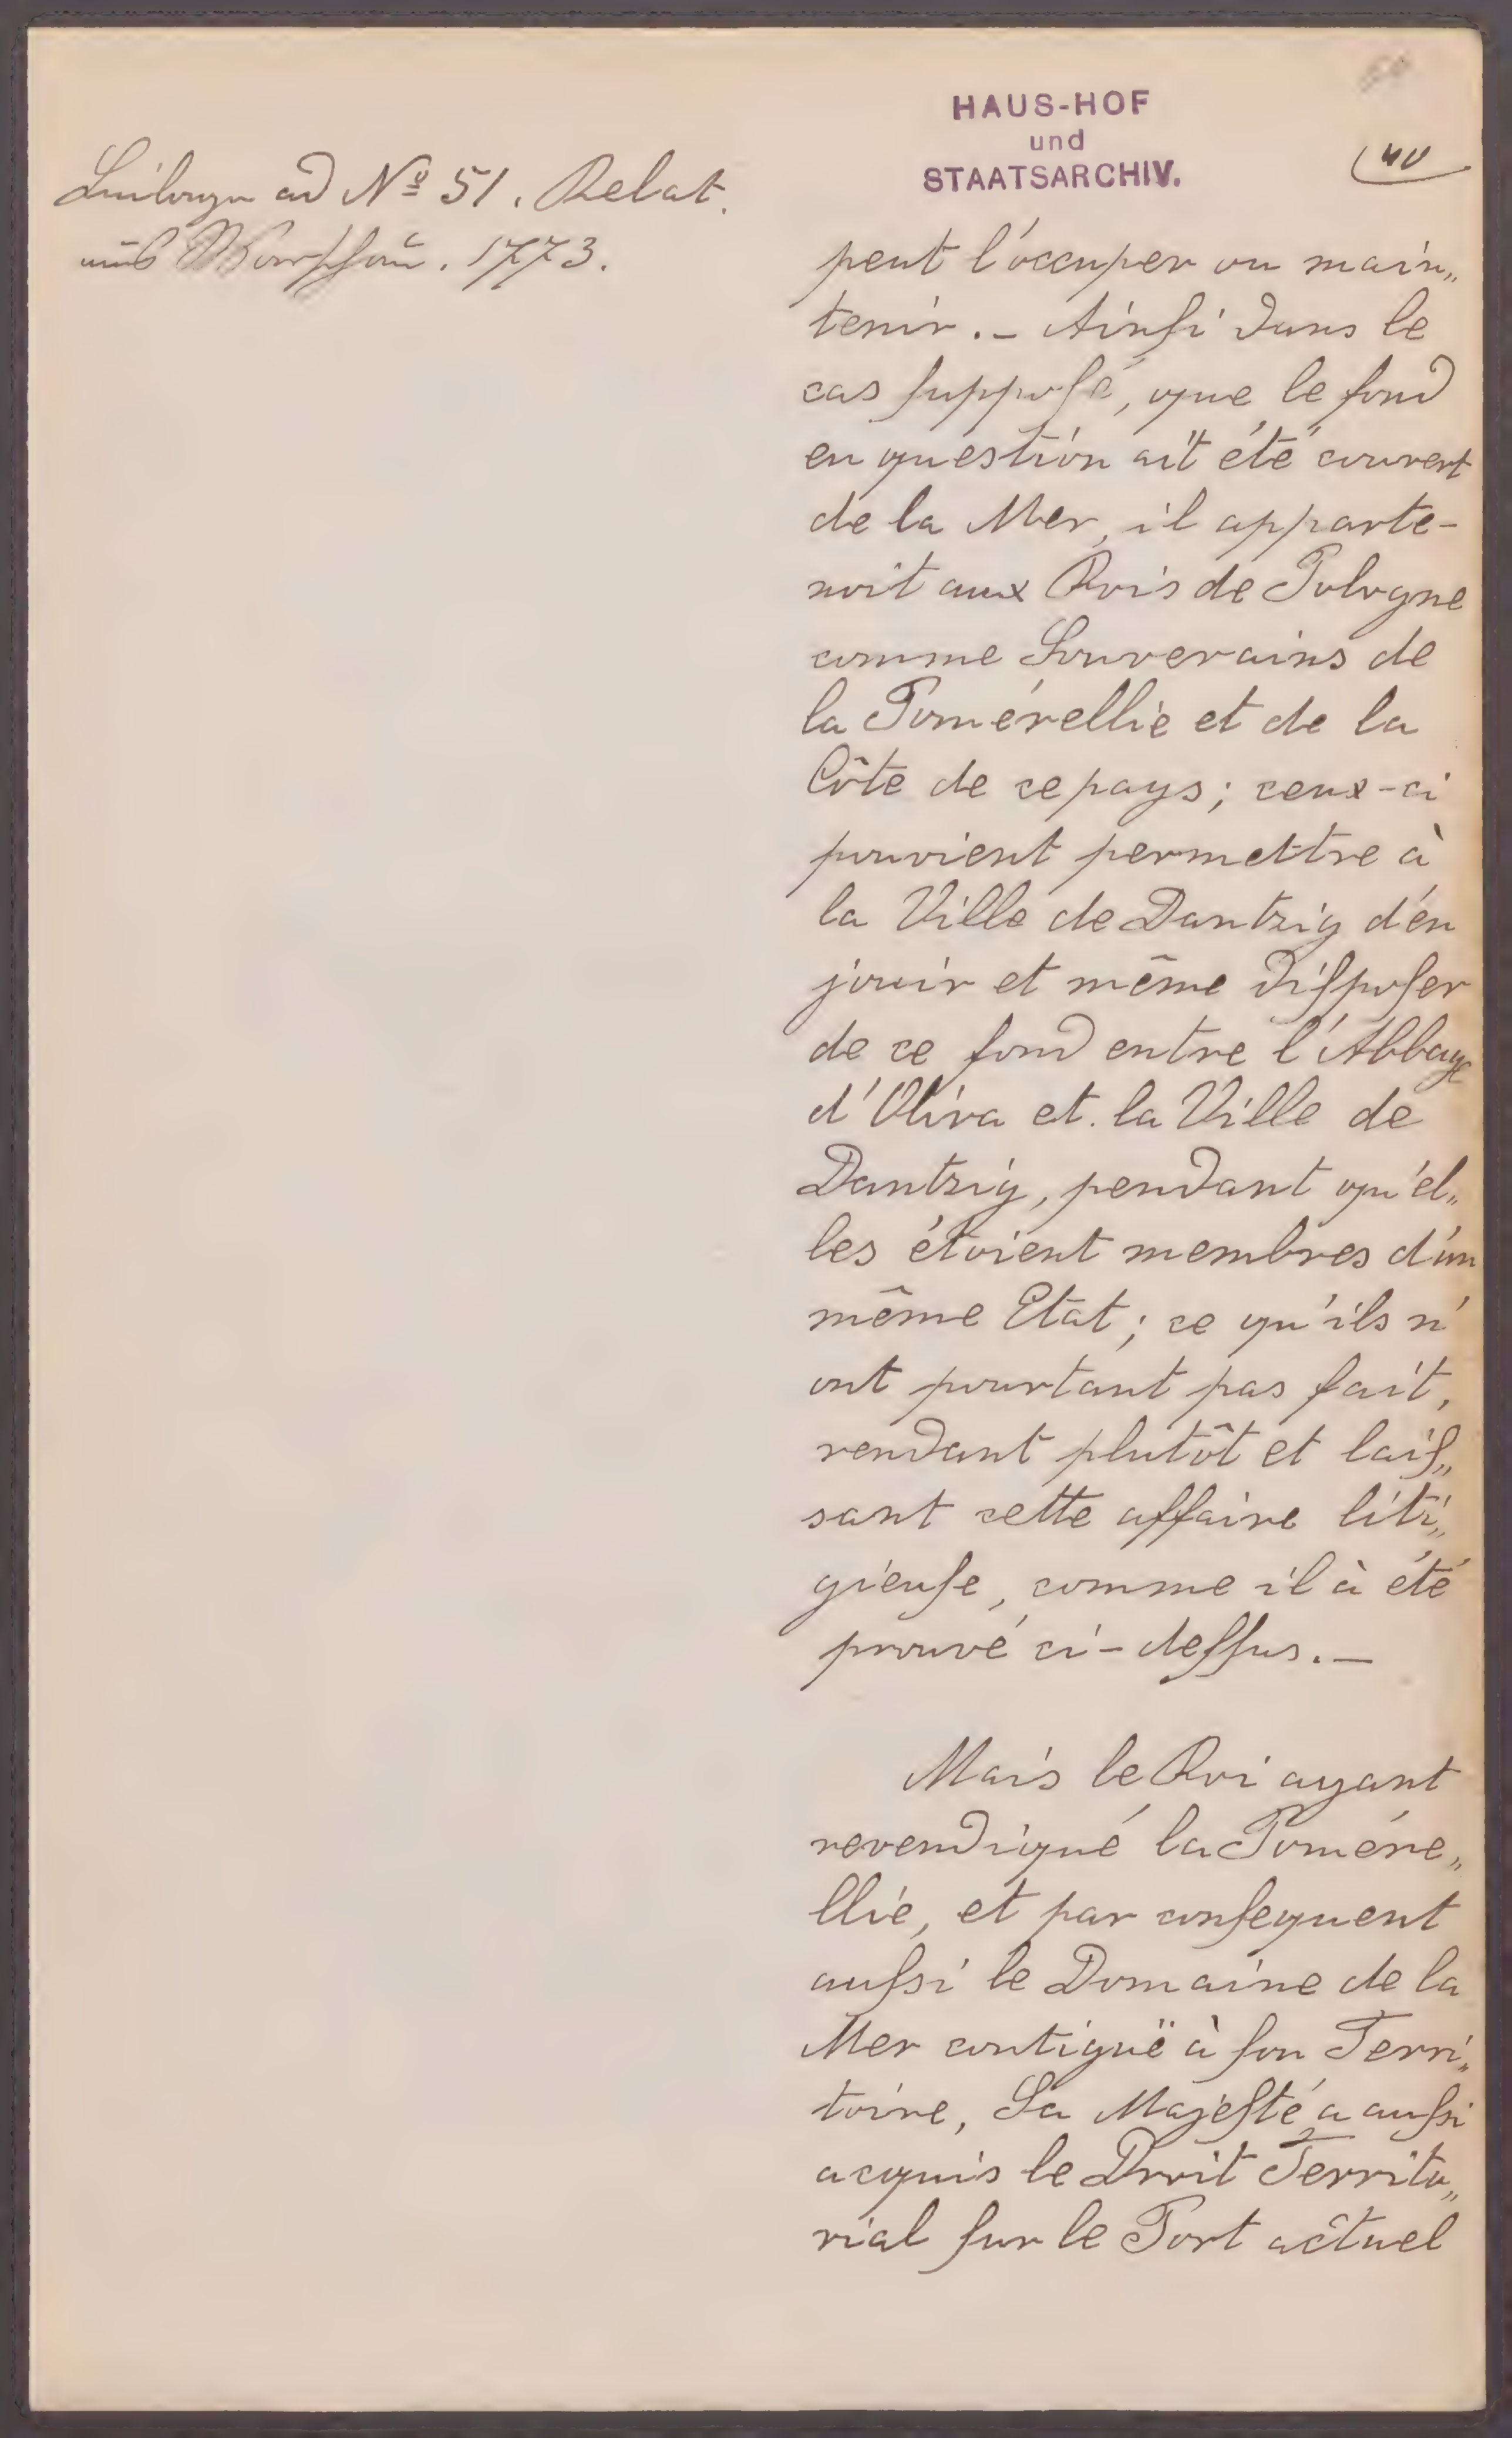 HAUS-HOF
und
STAATSARCHIV.
40
Beilagen ad Nº 51. Relat.
aus Warschau. 1773.
peut l'occuper ou main„
tenir. _ Ainſi dans le
cas ſuppoſé, que le fond
en question ait été couvert
de la Mer, il apparte-
noit aux Rois de Pologne
comme Souverains de
la Pomérellie et de la
Côte de ce pays; ceux-ci
pouvient permettre à
la Ville de Dantzig d'en
jouir et même diſpoſer
de ce fond entre l'Abbaye
d'Oliva et la Ville de
Dantzig, pendant qu'el„
les étoient membres d'un
même Etat; ce qu'ils n'
ont pourtant pas fait,
rendant plutôt et laiſ„
sant cette affaire liti„
gieuſe, comme il à été
prouvé ci-deſſus. _
Mais le Roi ayant
revendiqué la Pomére„
llie, et par conſequent
auſsi le Domaine de la
Mer contiguë à ſon Terri„
toire, Sa Majeſté a auſsi
acquis le Droit Territo„
rial ſur le Port actuel